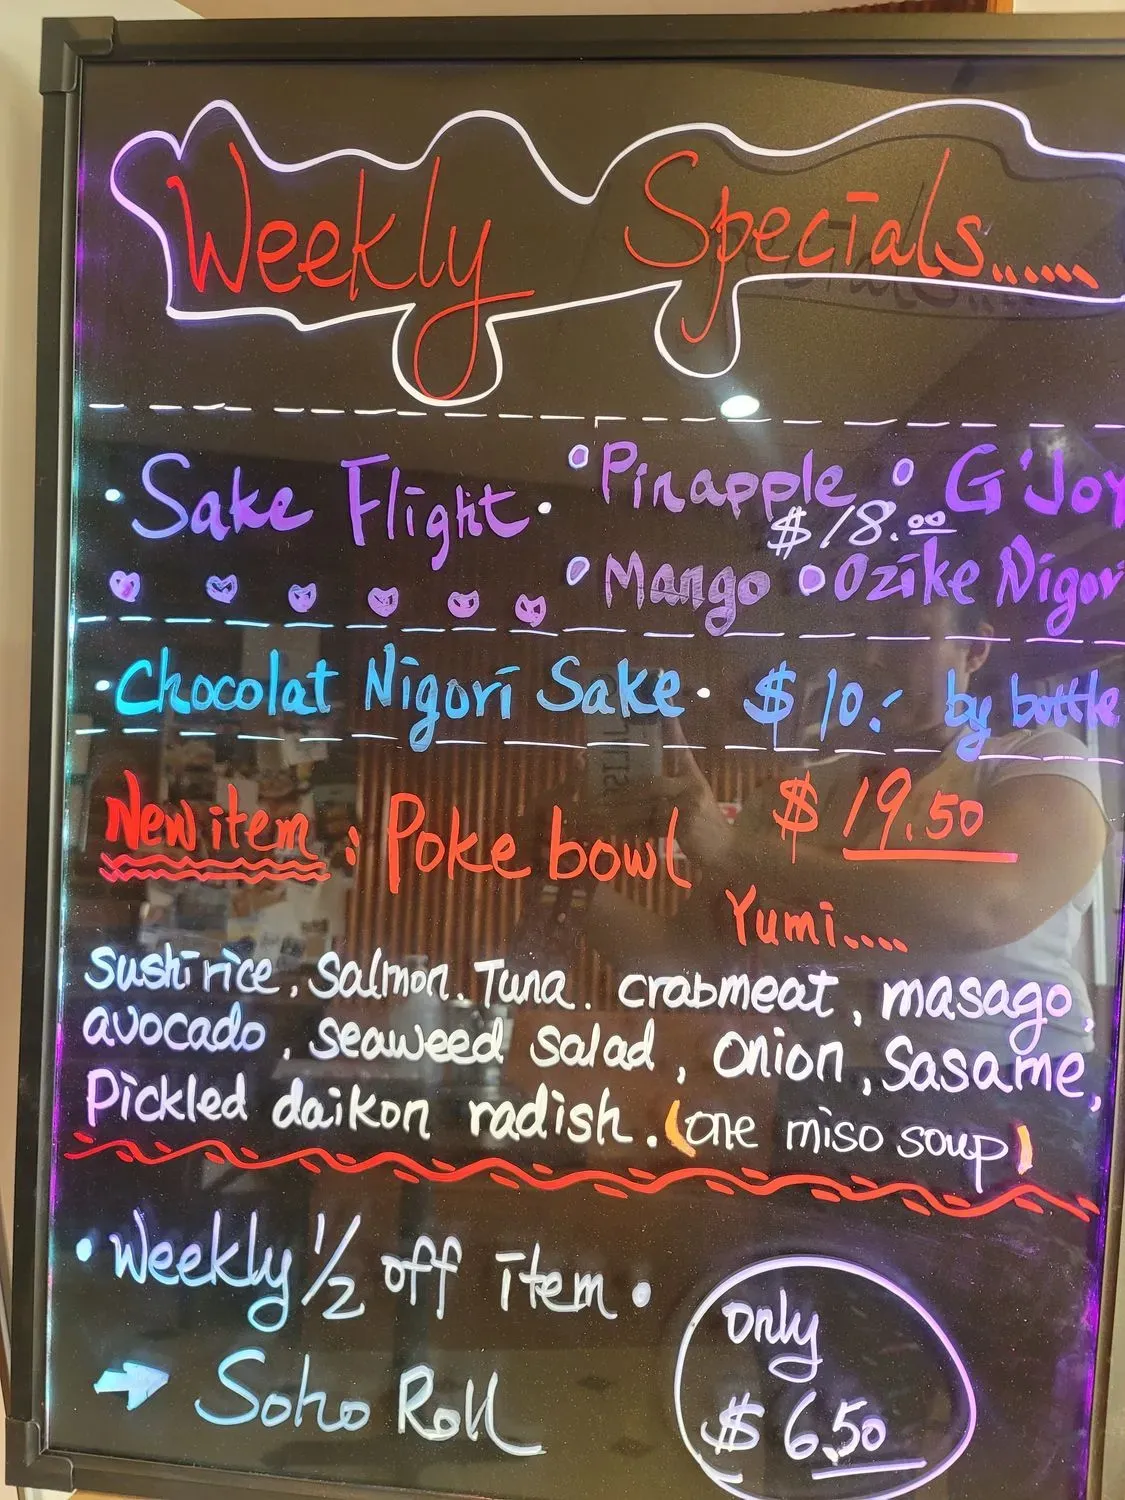 Weekly Specials......
• Sake Flight • • Pinapple • G'Joy
$18.00
• Mango • Ozike Nigori
• Chocolat Nigori Sake • $10.- by bottle
New item : Poke bowl $19.50
Yumi....
Sushi rice, Salmon. Tuna. crabmeat, masago,
avocado, seaweed salad, onion, Sasame,
Pickled daikon radish. (one miso soup)
• Weekly 1/2 off item •
only
→ Soho Roll
$6.50